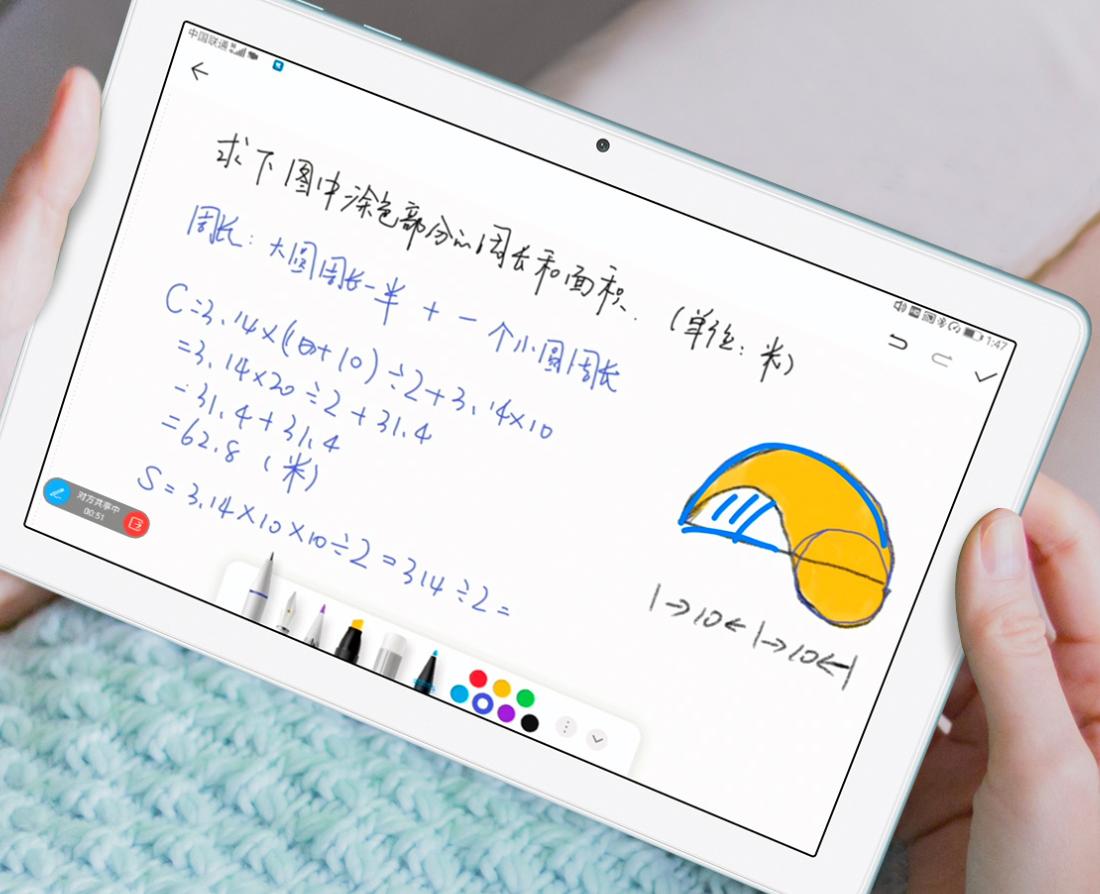 中国联通
1:47
求下图中涂色部分的周长和面积.(单位:米)
周长:大圆周长一半 + 一个小圆周长
C=3.14×(10+10)÷2+3.14×10
=3.14×20÷2+31.4
=31.4+31.4
=62.8(米)
S=3.14×10×10÷2=314÷2=
|→10←|→10←|
对方共享中
00:51